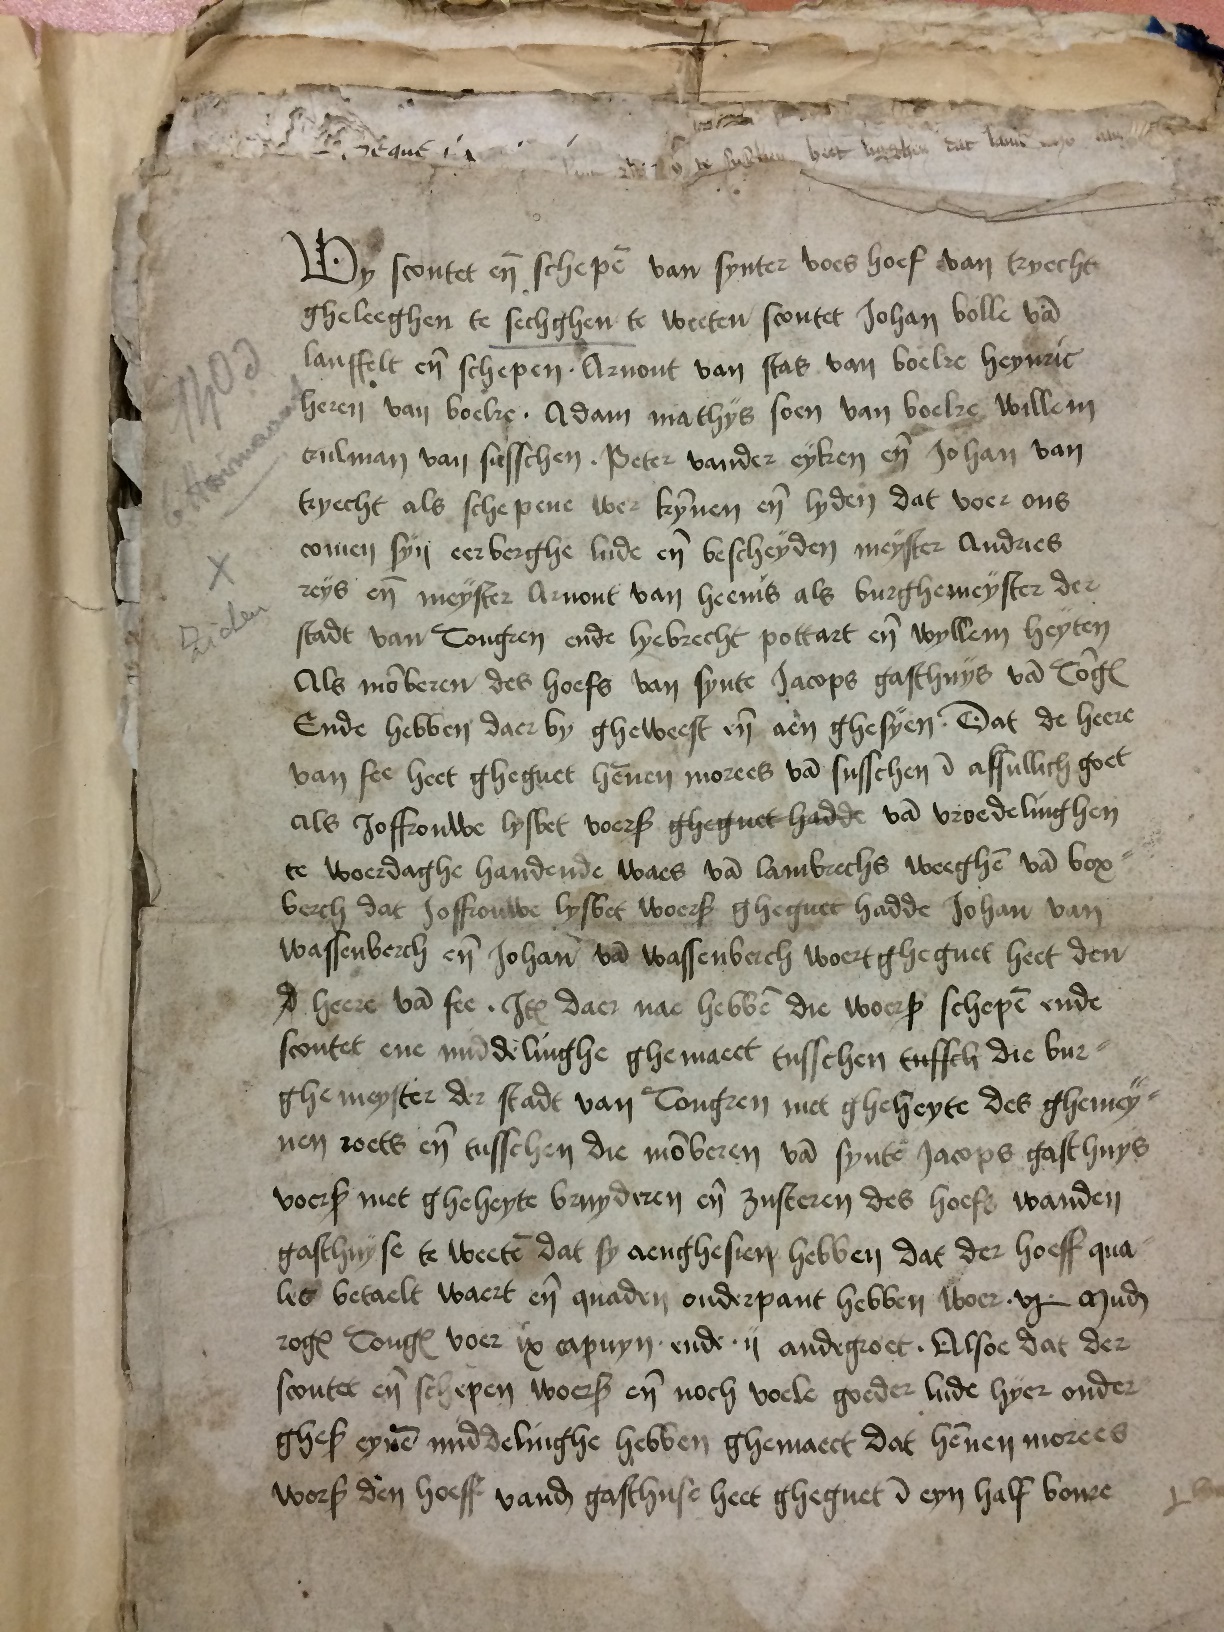 Wy scoutet en̄ schepē van synter voes hoef van tryecht
gheleeghen te sechghen te weeten scoutet Johan bolle vā
lauffelt en̄ schepen. Arnout van stas van boelre heynric
heren van boelre. Adam mathijs soen van boelre willem
trulman van susschen. Peter vander eyken en̄ Johan van
tryecht als schepene wer kȳnen en̄ lyden dat voer ons
comen syn eerberghe lude en̄ bescheyden meyster Andries
reys en̄ meyster Arnout van heenis als burghemeyster der
stadt van Tongren ende lyebrecht pottart en̄ wyllem heyten
Als mōberen des hoefs van synte Jacops gasthuys vā Tōgr
Ende hebben daer by gheweest en̄ aen ghesyen. Dat de heere
van fee heet gheguet hēnen morees vā susschen ī assullich goet
als Joffrouwe lysbet voers gheguet hadde vā vroedelinghen
te woerdaghe handende waes vā lambrechs weeghē vā box
berch dat Joffrouwe lysbet woers gheguet hadde Johan van
wassenberch en̄ Johan vā wassenberch woert gheguet heet den
heere vā fee. Itē daer nae hebbē die woers schepē ende
scoutet ene middelinghe ghemaect tusschen tussch die bur
ghemeyster der stadt van Tongren met gheheyte des ghemey
nen roets en̄ tusschen die mōberen vā synte Jacops gasthuys
voers met gheheyte bruyderen en̄ zusteren des hoefs wanden
gasthuyse te weetē dat sy aenghesien hebben dat der hoeff qua
let betaelt waert en̄ quaden onderpant hebben woer. vj mud
rogē Tongr voer ix capuyn. ende. ij andegroet. Alsoe dat der
scoutet en̄ schepen woers en̄ noch voele goeder lude hyer onder
ghes eynē middelinghe hebben ghemaect dat hēnen morees
wors den hoeff vand gasthuse heet gheguet ī eyn half boure